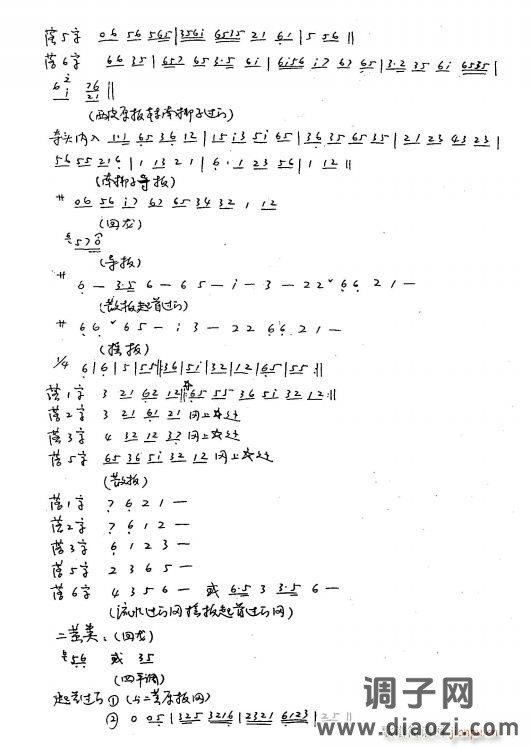 落5字 06 56 565|3561 6535 21 61|5 56||
落6字 66 35|657 65 3.5 6i|6i56 i7 67 65|3.2 35 6i 6535|
6 2/i 76/21||
(西皮原板 南梆子过门)
夺头内入 1.1 65 36 12|15 i3 5i 65|36 35 65 35|21 23 43 23|
56 55 21 6|1 13 21|6.1 23 56|1 12||
(南梆子导板)
サ 06 56 i7 67 65 34 32 1 12
(回龙)
576
(导板)
サ 6 — 3.5 6 — 6 5 — i — 3 — 22 ˇ 66 21 —
(散板起首过门)
サ 66 ˇ 65 — i 3 — 22 66 21 —
(摇板)
1/4 6|6|5|55||36|5i|32|12|65|55:||
落1字 3 21 62 12||:65 55 36 5i 32 12:||
落2字 3 21 61 21 同上
落3字 4 32 12 37 同上
落5字 65 36 5i 32 12 同上
(散板)
落1字 7 6 2 1 —
落2字 7 6 1 2 —
落3字 6 1 2 3 —
落5字 2 3 6 5 —
落6字 4 3 5 6 — 或 6.5 3 3.5 6 —
(流水过门同摇板起首过门同)
二黄类:(回龙)
56 或 35
(四平调)
起首过门①(与二黄原板同)
② 0 05|325 3216|2321 6123|25||
调子网
www.diaozi.com